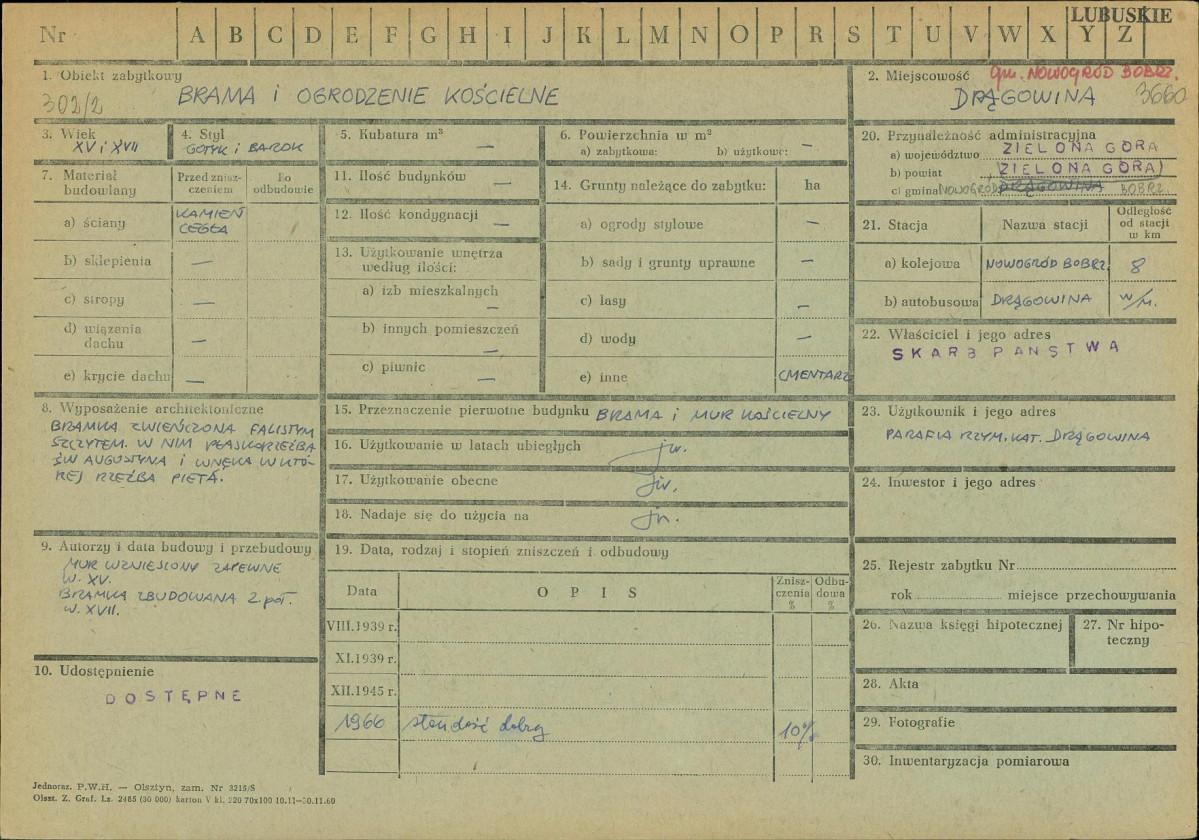 LUBUSKIE
Nr A B C D E F G H I J K L M N O P R S T U V W X Y Z
1. Obiekt zabytkowy
302/2 BRAMA i OGRODZENIE KOŚCIELNE
2. Miejscowość gm. NOWOGRÓD BOBRZ.
DRĄGOWINA 3660
3. Wiek
XV i XVII
4. Styl
GOTYK i BAROK
5. Kubatura m³ —
6. Powierzchnia w m²
a) zabytkowa: b) użytkowe: —
7. Materiał budowlany
Przed zniszczeniem
Po odbudowie
a) ściany KAMIEŃ
CEGŁA
b) sklepienia —
c) stropy —
d) wiązania dachu —
e) krycie dachu —
8. Wyposażenie architektoniczne
BRAMKA ZWIEŃCZONA FALISTYM
SZCZYTEM. W NIM PŁASKORZEŹBA
ŚW AUGUSTYNA i WNĘKA W KTÓ-
REJ RZEŹBA PIETÁ.
9. Autorzy i data budowy i przebudowy
MUR WZNIESIONY ZAPEWNE
W. XV.
BRAMKA ZBUDOWANA 2 poł.
W. XVII.
10. Udostępnienie
DOSTĘPNE
11. Ilość budynków —
12. Ilość kondygnacji —
13. Użytkowanie wnętrza
według ilości:
a) izb mieszkalnych —
b) innych pomieszczeń —
c) piwnic —
14. Grunty należące do zabytku: ha
a) ogrody stylowe —
b) sady i grunty uprawne —
c) lasy —
d) wody —
e) inne CMENTARZ
15. Przeznaczenie pierwotne budynku BRAMA i MUR KOŚCIELNY
16. Użytkowanie w latach ubiegłych jw.
17. Użytkowanie obecne jw.
18. Nadaje się do użycia na jw.
19. Data, rodzaj i stopień zniszczeń i odbudowy
Data OPIS Zniszczenia % Odbudowa %
VIII.1939 r.
XI.1939 r.
XII.1945 r.
1966 stan dość dobry 10%
20. Przynależność administracyjna
a) województwo ZIELONA GÓRA
b) powiat ZIELONA GÓRA
c) gmina NOWOGRÓD DRĄGOWINA BOBRZ.
21. Stacja Nazwa stacji Odległość od stacji w km
a) kolejowa NOWOGRÓD BOBRZ. 8
b) autobusowa DRĄGOWINA w/m.
22. Właściciel i jego adres
SKARB PAŃSTWA
23. Użytkownik i jego adres
PARAFIA RZYM. KAT. DRĄGOWINA
24. Inwestor i jego adres
25. Rejestr zabytku Nr
rok miejsce przechowywania
26. Nazwa księgi hipotecznej
27. Nr hipoteczny
28. Akta
29. Fotografie
30. Inwentaryzacja pomiarowa
Jednoraz. P.W.H. — Olsztyn, zam. Nr 3215/S
Olszt. Z. Graf. Lz. 2485 (30 000) karton V kl. 220 70x100 10.11—30.11.60